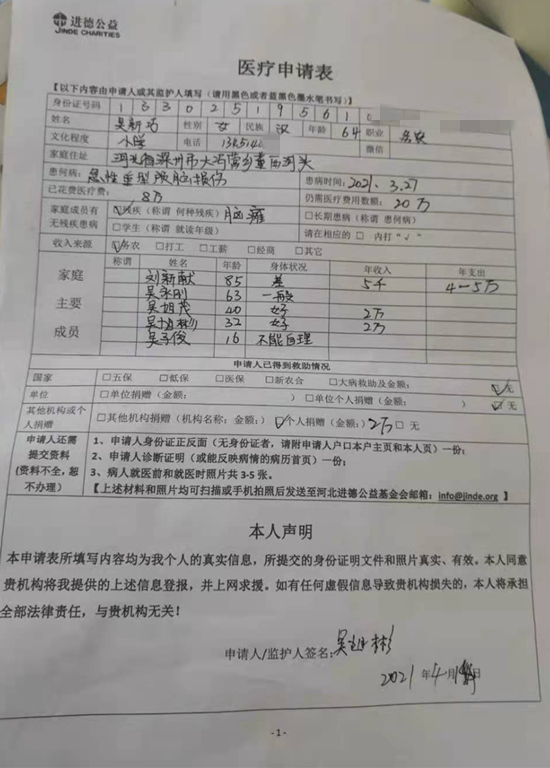 进德公益
JINDE CHARITIES
医疗申请表
【以下内容由申请人或其监护人填写（请用黑色或者蓝黑色墨水笔书写）】
身份证号码 1 3 3 0 2 5 1 9 5 6 1 0
姓名 吴新巧 性别 女 民族 汉 年龄 64 职业 务农
文化程度 小学 电话 微信
家庭住址 河北省深州市大冯营乡
患何病：急性重型颅脑损伤 患病时间：2021、3.27
已花费医疗费： 8万 仍需医疗费用数额：20万
家庭成员有无残疾患病 ☑残疾（称谓 何种残疾）脑瘫 □长期患病（称谓 患何病）
□学生（称谓 就读年级） 请在相应的 □ 内打"√"
收入来源 ☑务农 □打工 □工薪 □经商 □其它
家庭主要成员 称谓 姓名 年龄 身体状况 年收入 年支出
刘新献 85 差 5千 4-5万
吴永刚 63 一般
吴旭茂 40 好 2万
吴旭彬 32 好 2万
吴子俊 16 不能自理
申请人已得到救助情况
国家 □五保 □低保 □医保 □新农合 □大病救助及金额: ☑无
单位 □单位捐赠（金额: ）□单位个人捐赠（金额: ） ☑无
其他机构或个人捐赠 □其他机构捐赠（机构名称: 金额:）☑个人捐赠（金额:）2万 □ 无
申请人还需提交资料(资料不全，恕不办理)
1、申请人身份证正反面（无身份证者，请附申请人户口本户主页和本人页）一份;
2、申请人诊断证明（或能反映病情的病历首页）一份;
3、病人就医前和就医时照片共 3-5 张。
【上述材料和照片均可扫描或手机拍照后发送至河北进德公益基金会邮箱: info@jinde.org 】
本人声明
本申请表所填写内容均为我个人的真实信息，所提交的身份证明文件和照片真实、有效。本人同意
贵机构将我提供的上述信息登报，并上网求援。如有任何虚假信息导致贵机构损失的，本人将承担
全部法律责任，与贵机构无关！
申请人/监护人签名: 吴旭彬
2021 年 4 月 日
- 1 -